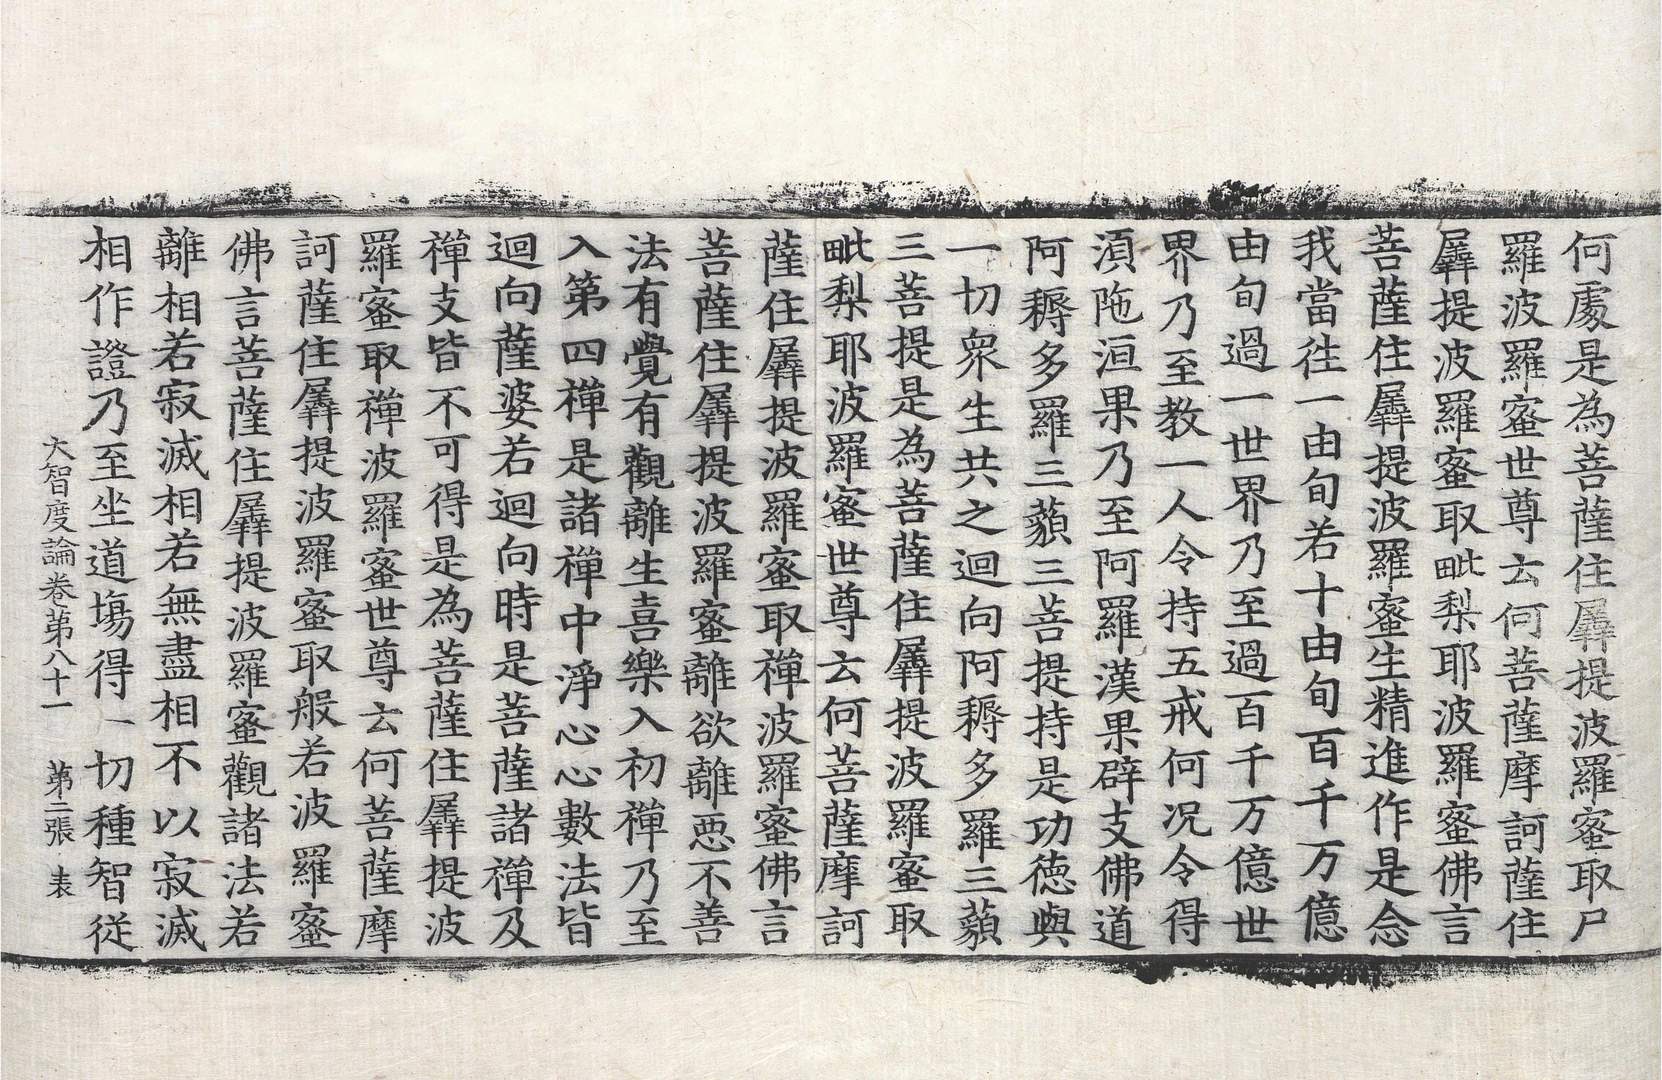 何處是為菩薩住羼提波羅蜜取尸
羅波羅蜜世尊云何菩薩摩訶薩住
羼提波羅蜜取毗梨耶波羅蜜佛言
菩薩住羼提波羅蜜生精進作是念
我當往一由旬若十由旬百千万億
由旬過一世界乃至過百千万億世
界乃至教一人令持五戒何况令得
湏陁洹果乃至阿羅漢果辟支佛道
阿耨多羅三藐三菩提持是功德與
一切衆生共之迴向阿耨多羅三藐
三菩提是為菩薩住羼提波羅蜜取
毗梨耶波羅蜜世尊云何菩薩摩訶
薩住羼提波羅蜜取禪波羅蜜佛言
菩薩住羼提波羅蜜離欲離惡不善
法有覺有觀離生喜樂入初禪乃至
入第四禪是諸禪中淨心心數法皆
迴向薩婆若迴向時是菩薩諸禪及
禪支皆不可得是為菩薩住羼提波
羅蜜取禪波羅蜜世尊云何菩薩摩
訶薩住羼提波羅蜜取般若波羅蜜
佛言菩薩住羼提波羅蜜觀諸法若
離相若寂滅相若無盡相不以寂滅
相作證乃至坐道場得一切種智從
大智度論卷第八十一　第二張　表